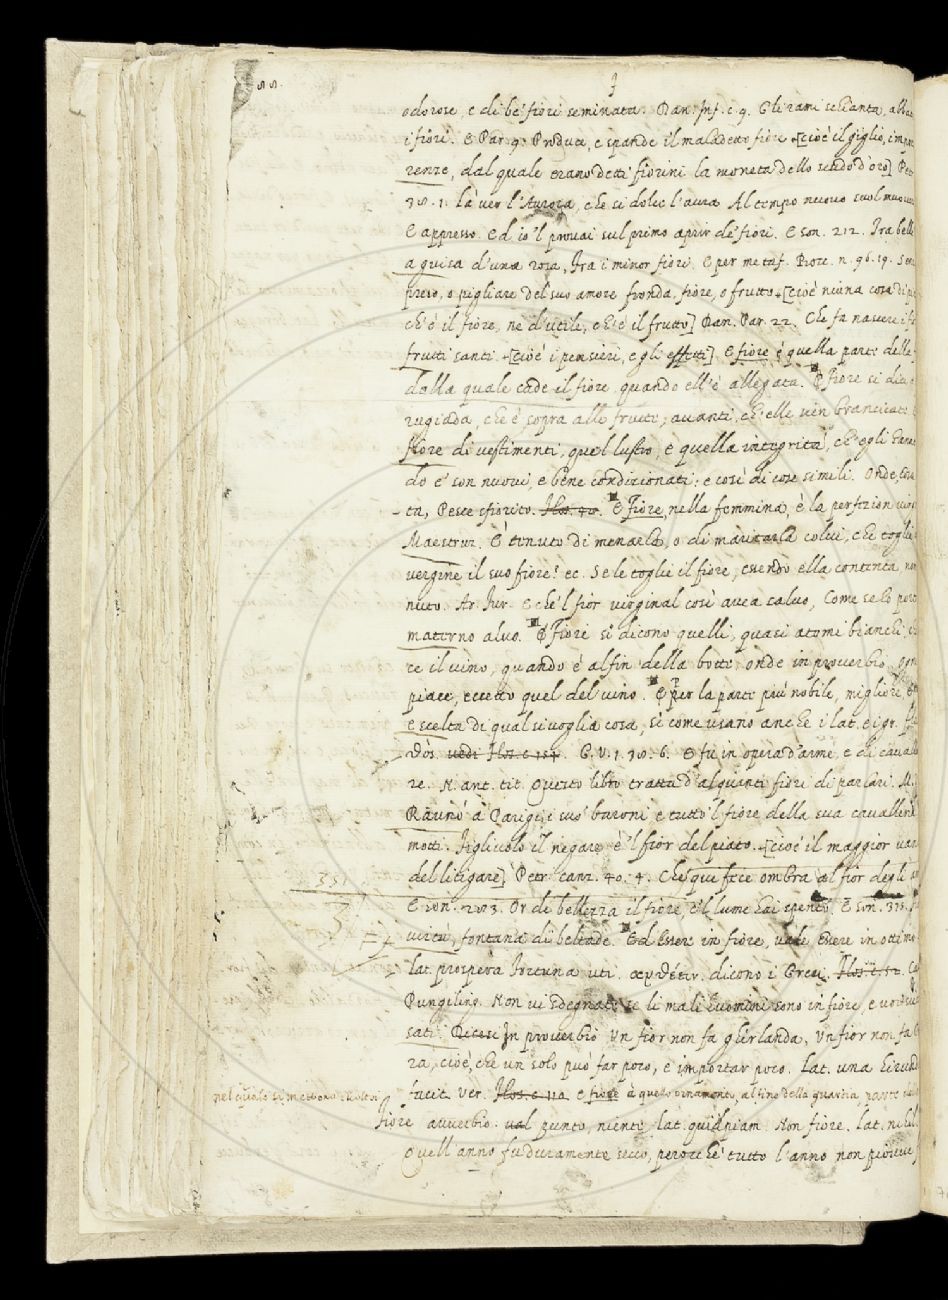 88.
odorose, e di be' fiori seminata. Dan. Inf. c. 9. Gli rami schianta, abbat
i fiori. E Par. 9. Produce, e spande il maladetto fiore +[cioè il giglio, impr
renze, dal quale erano detti fiorini la moneta dello scudo d'oro] Petr
38. 1. là ver l'Aurora, che sì dolce l'aura Al tempo nuovo suol muovere
E appresso. Ed io 'l provai sul primo aprir de' fiori. E son. 212. Tra belle
a guisa d'una rosa, Tra i minor fiori. E per metaf. Bocc. n. 96. 19. Sen
preso, o pigliare del suo amore fronda, fiore, o frutto +[cioè niuna cosa di
ch'è il fiore, nè d'utile, ch'è il frutto] Dan. Par. 22. Che fa nascere i fi
frutti santi. +[cioè i pensieri, e gli effetti] E fiore è quella parte delle
dalla quale cade il fiore quando ell'è allegata. E Fiore si dice
rugiada, che è sopra alle frutte, avanti, ch'elle vien brancicate
fiore di vestimenti, quel lustro, e quella integrità, ch'egli hanno
do e' son nuovi, e bene condizionati: e così di cose simili. Onde,
ta, Pesce sfiorito. E Fiore, nella femmina, è la perfezion
Maestruz. È tenuto di menarla, o di maritarla colui, che toglie
vergine il suo fiore? ec. Se le toglie il fiore, essendo ella contenta, non
nuto. Ar. Fur. E che 'l fior virginal così avea salvo, Come se lo portò
materno alvo. E Fiori si dicono quelli, quasi atomi bianchi,
ce il vino, quando è al fin della botte: onde in proverbio. Ogni
piace, eccetto quel del vino. E per la parte più nobile, migliore,
e scelta di qual si voglia cosa, sì come usano anche i lat. e i gr.
vedi G. V. 1. 38. 6. E fu in opera d'arme, e di cavalle
re. N. ant. tit. Questo libro tratta d'alquanti fiori di parlari. M.
Raunò a Parigi i suo' baroni e tutto 'l fiore della sua cavalleria
motti. Figliuolo il negare è 'l fior del piato. +[cioè il maggior van
del litigare] Petr. canz. 40. 4. Che qui fece ombra al fior degli an
E son. 283. Or de bellezza il fiore, e 'l lume hai spento. E son. 315.
virtù, fontana di beltade. Ed Essere in fiore, vale, Essere in ottimo
lat. prospera fortuna uti. dicono i Greci.
Pungiling. Non vi sdegnate se li mali huomini sono in fiore, e voi
sati. Dicesi In proverbio Un fior non fa ghirlanda, Un fior non fa
ra, cioè, che un solo può far poco, e importar poco. Lat. una hirund
facit. ver. E fiore à quello ornamento, al fine della quarta parte
nel quale si mettono
Fiore avverbio. val punto, niente, lat. quidpiam. Non fiore. Lat. nihil.
Quell'anno fu duramente secco, perocchè tutto l'anno non piovve